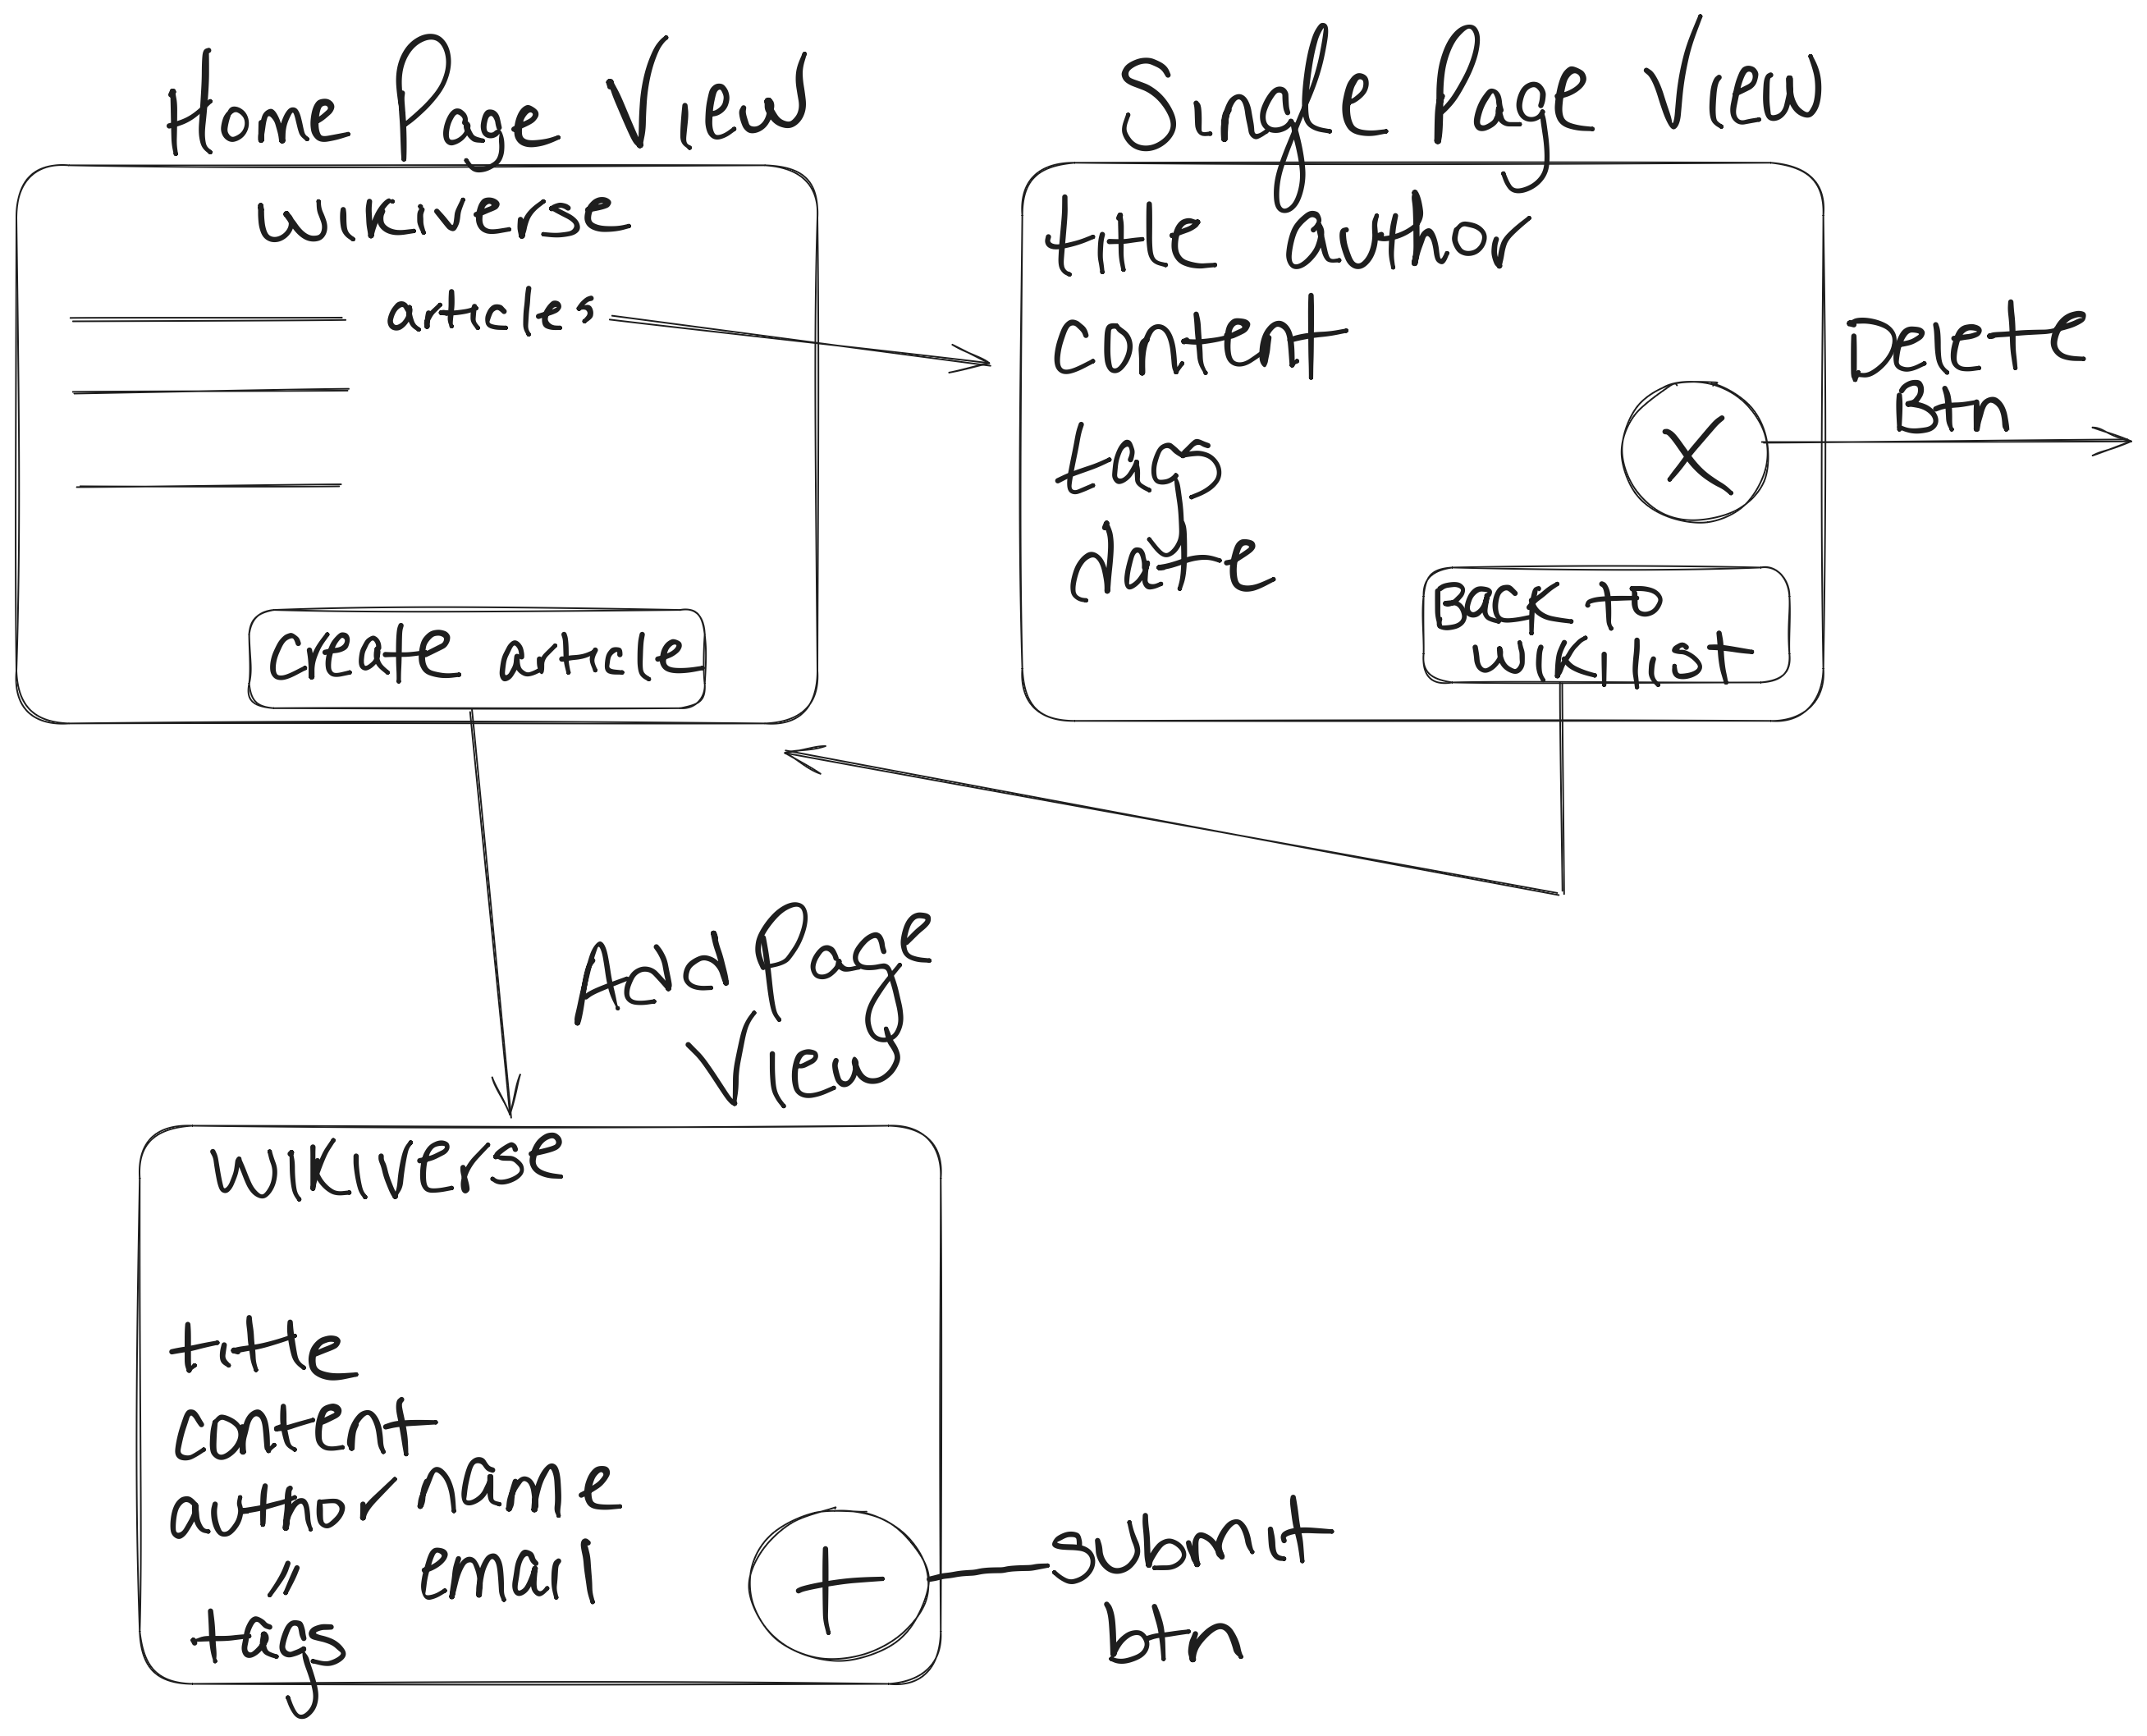 Home Page View
wikiverse
articles
create article
Single Page View
title author
content
tags
date
X
Back to
wiki list
Delete
Btn
Add Page
View
wikiverse
title
content
author name
" email
tags
+
submit
btn